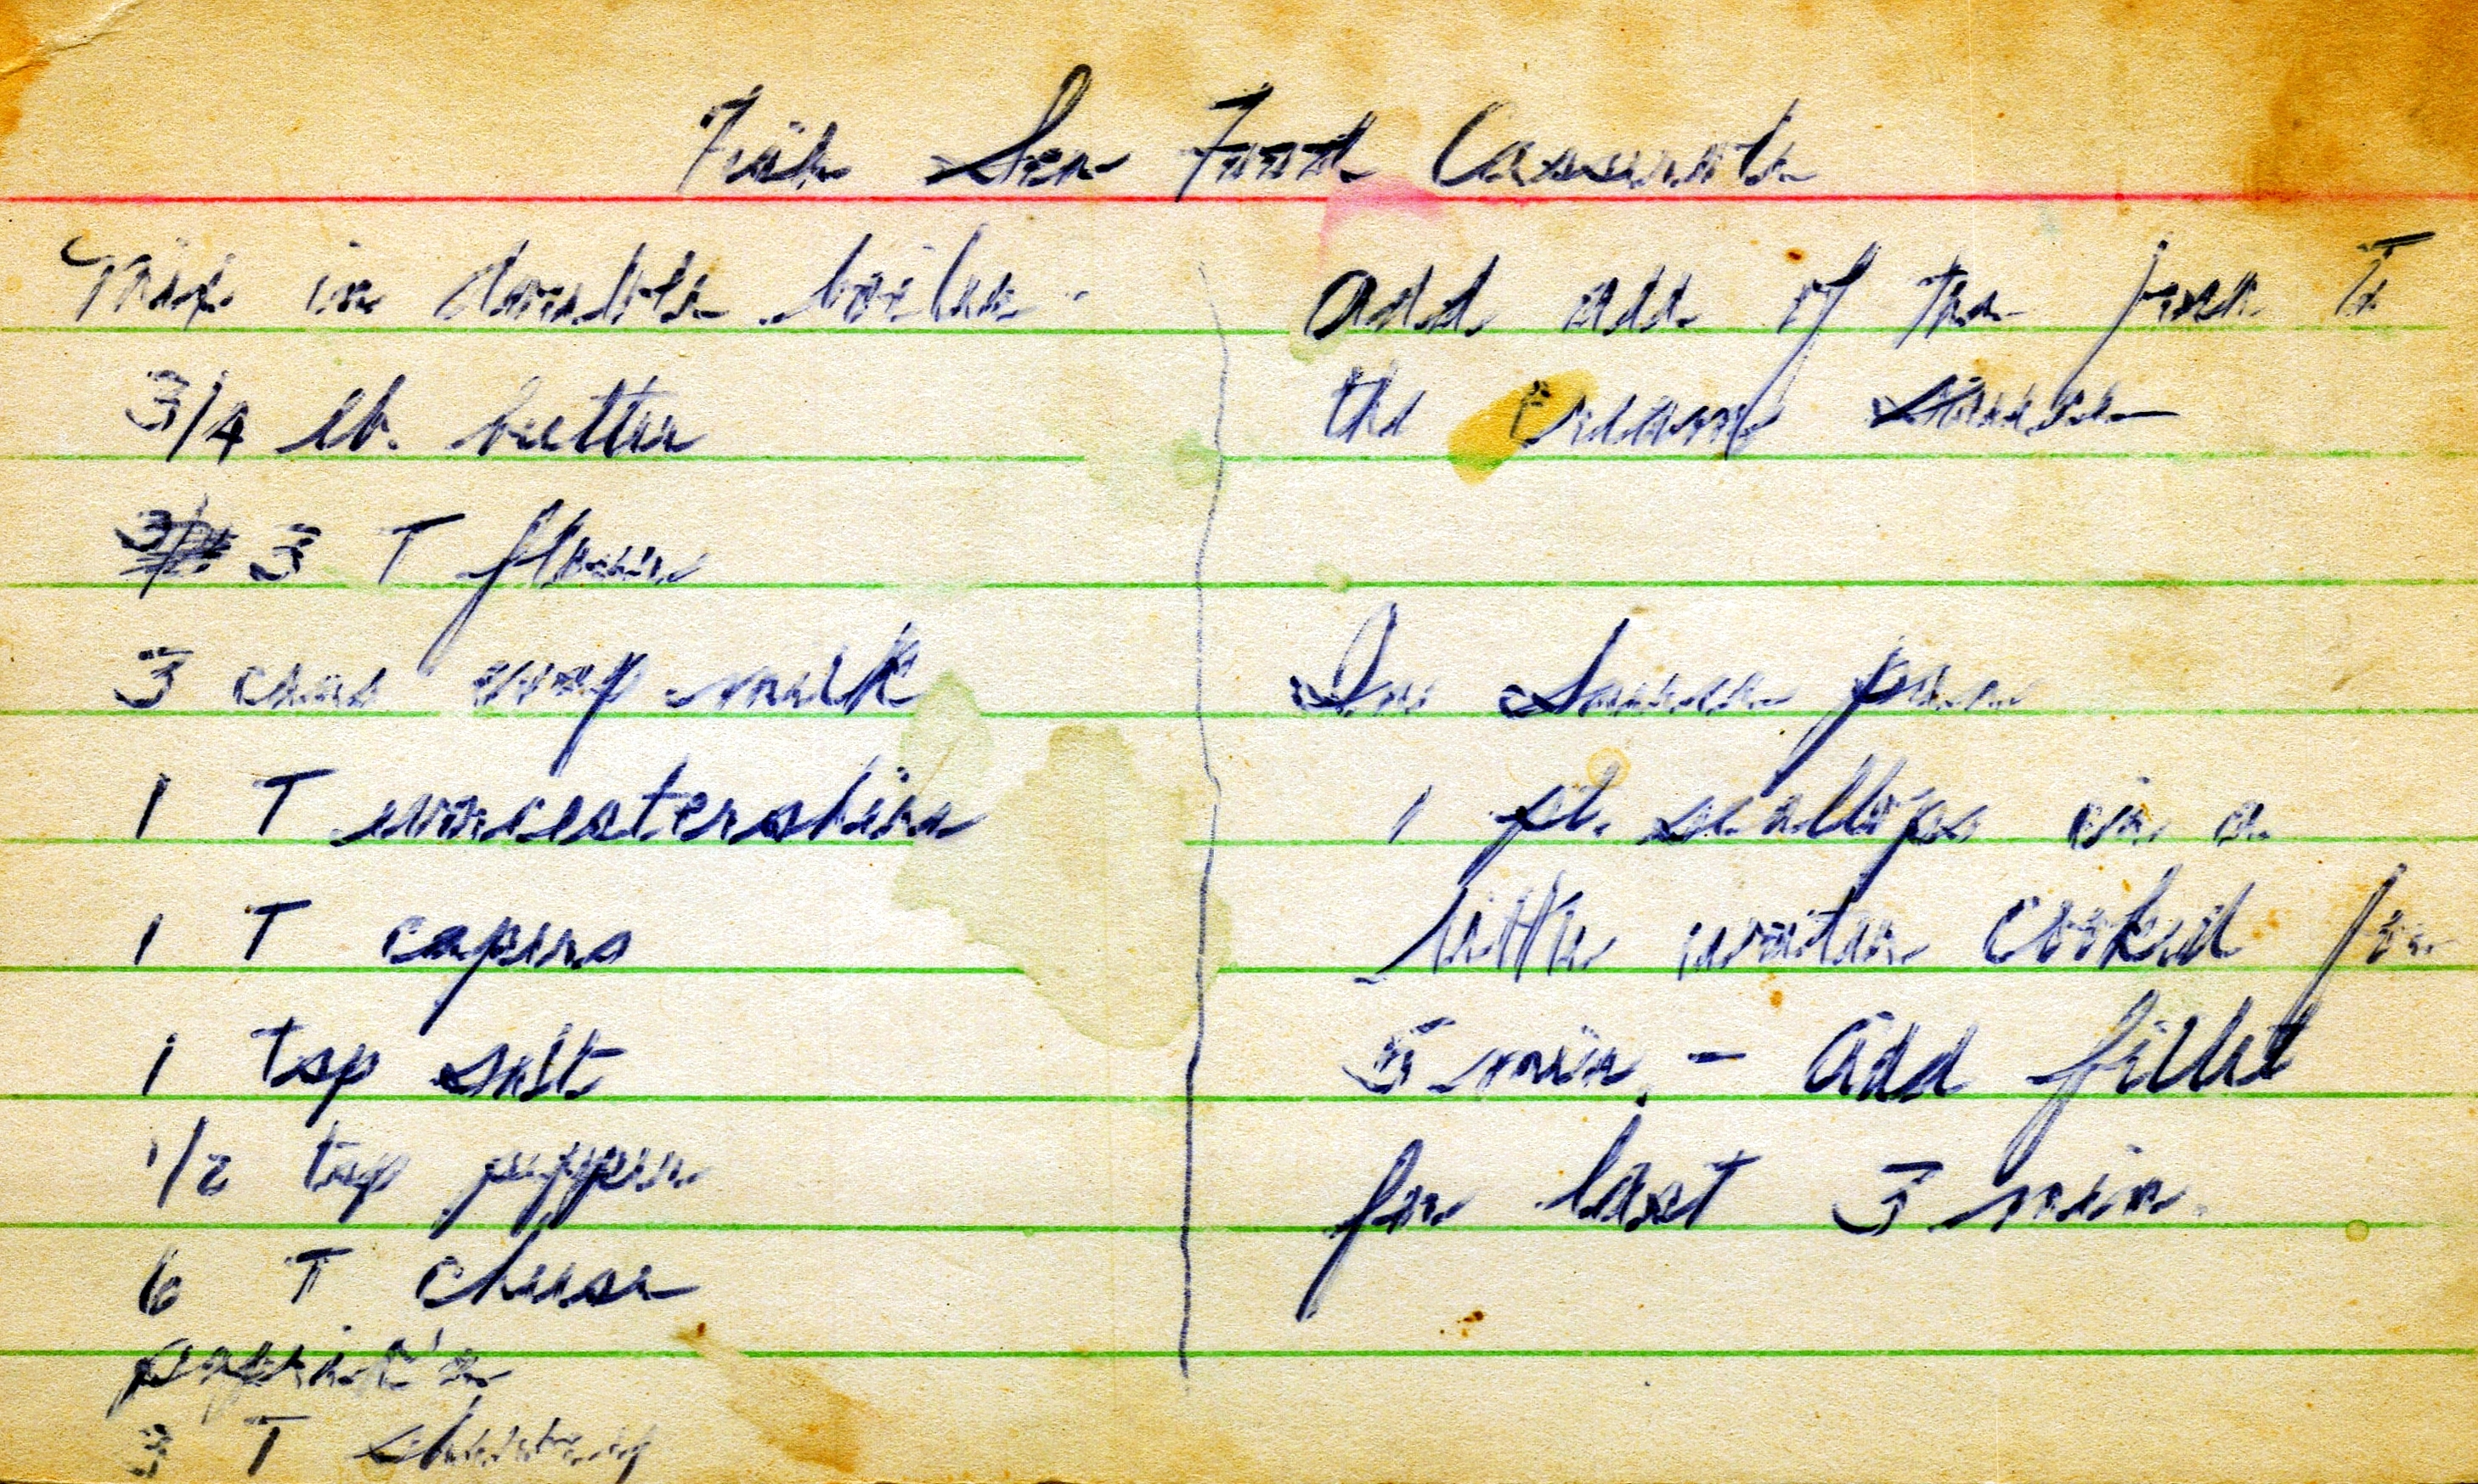 Fish Sea Food Casserole
Mix in double boiler
3/4 lb. butter
3 T flour
3 cans evap milk
1 T worcestershire
1 T capers
1 tsp salt
1/2 tsp pepper
6 T cheese
paprika
3 T sherry
add all of the fish to
the cream sauce
In Sauce pan
1 pt. scallops in a
little water cooked for
5 min. - add fillet
for last 3 min.